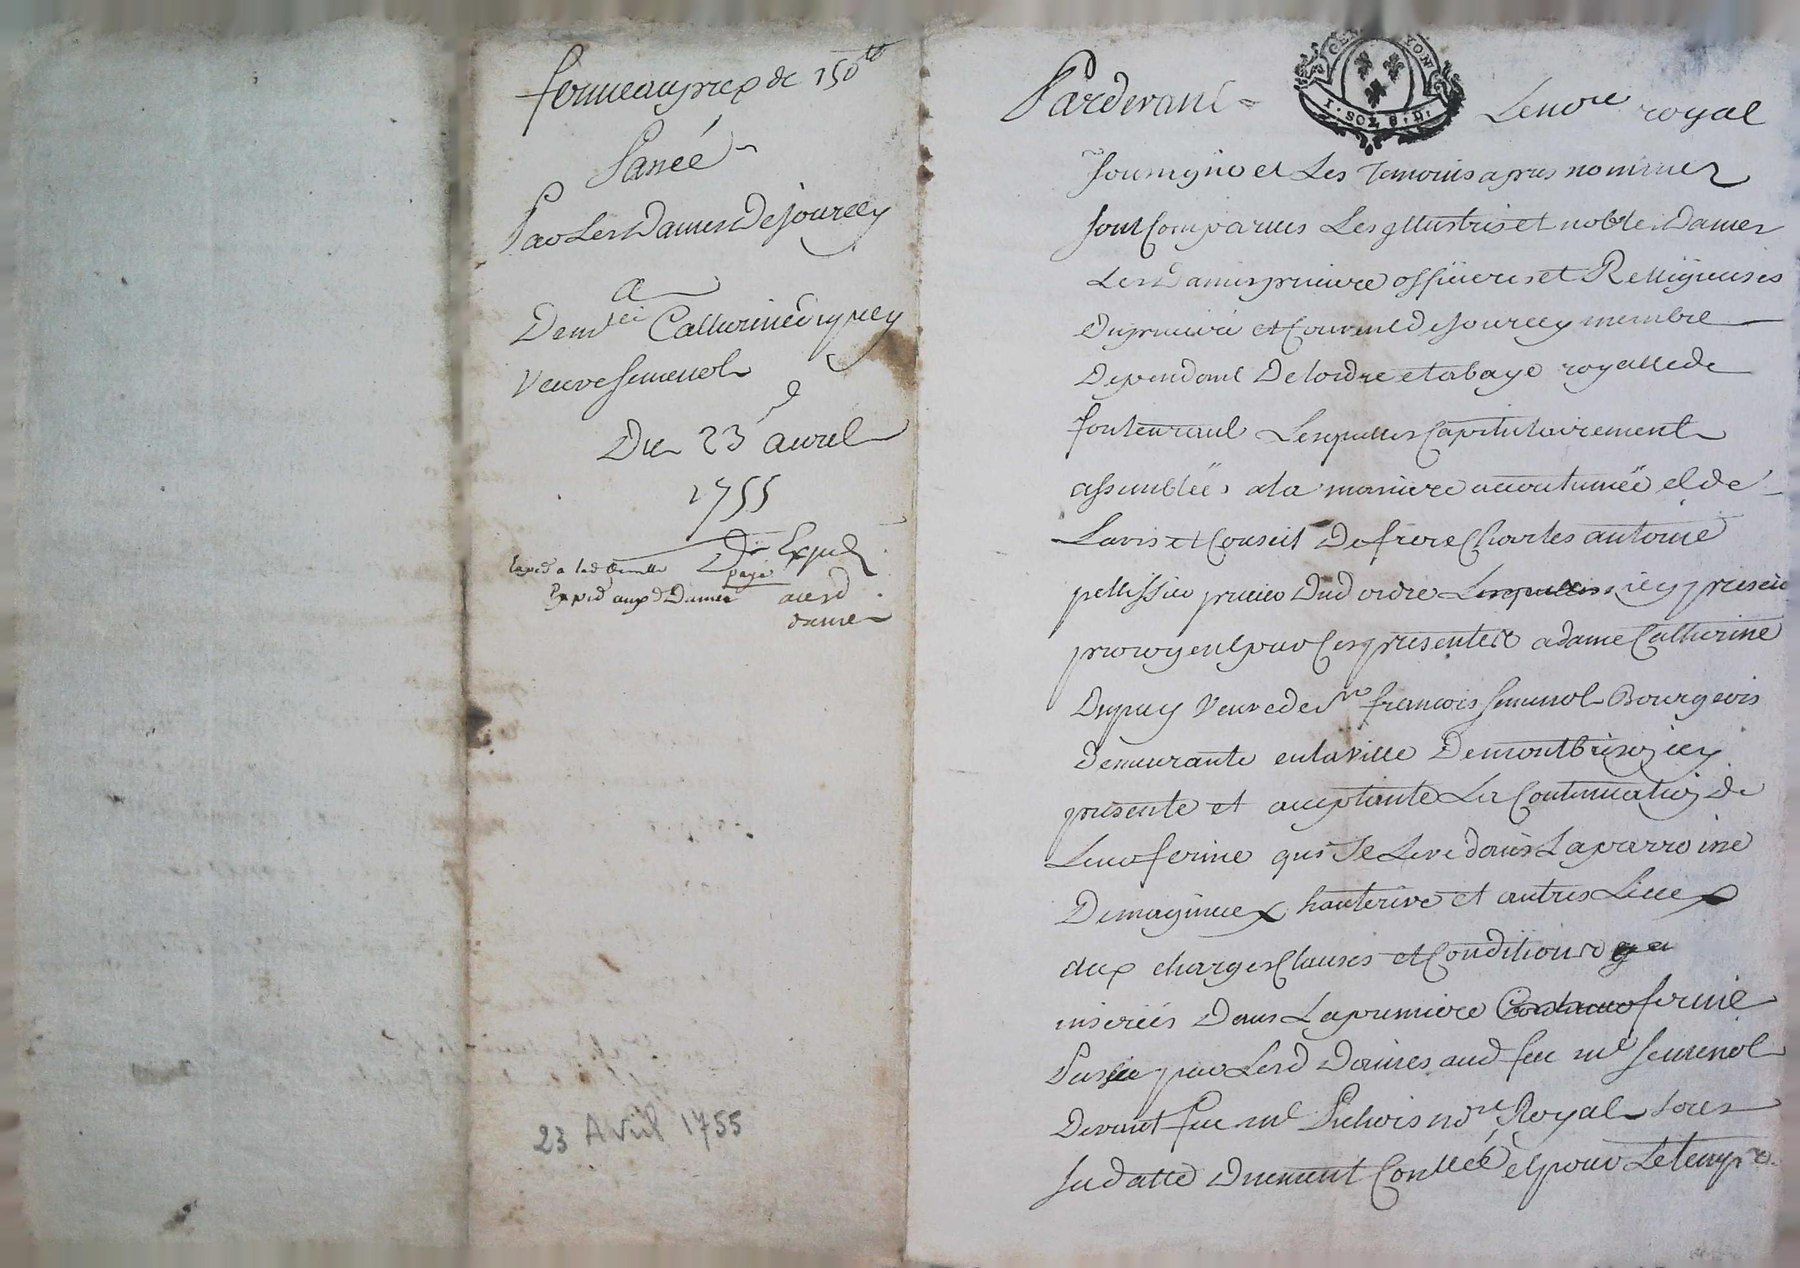 ferme au prix de 150 ₶
Passé
Par Les Dames De Jourcey
a
Dem^lle Catherine dupuy
Veuve semenol
Du 23 avril
1755
Exped
payé
Exped aux d Dames
23 Avril 1755
Pardevant Le no^re royal
I. SOL 8. D.
soussigné et Les Temoins apres nommez
sont Comparues Les jllustres et nobles Dames
Les Dames prieure offiieres et Relligieuses
Du prieuré et Couvent de Jourcey membre
Dependant De lordre et abaye royalle de
fontevraul Lesquelles Capitulairement
assemblées a la maniere accoutumée et de
Lavis et Conseil De frere Charles antoine
pellissier prieur Dud ordre Lesquelles icy present
prorogent par Ces presentes a dame Catherine
Dupuy Veuve de S^r francois semenol Bourgeois
demeurante en la ville De montbrison icy
presente et acceptante La Continuation de
Leur ferme qui se Leve dans La parroisse
De magnieux hauterive et autres Lieux
aux charges Clauses et Conditions
inserées Dans La premiere ferme
Passée par Lesd Dames aud feu m^e semenol
Devant feu m^e Puchois no^re Royal sous
sa datte Duement Con^llée et pour Le temps